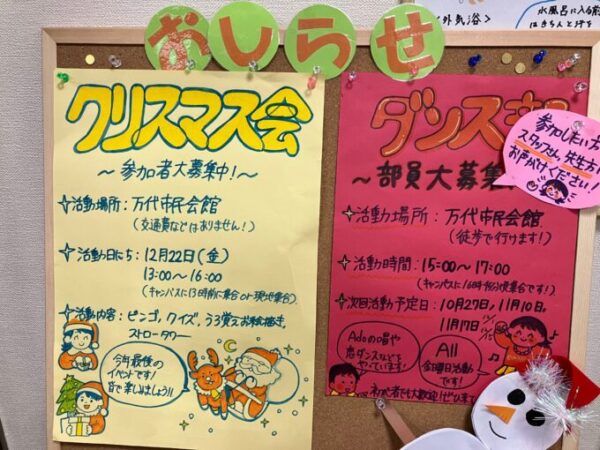 <外気浴>
水風呂に入る前
はきちんと汗を
おしらせ
クリスマス会
～参加者大募集中!～
活動場所:万代市民会館
(交通費などはありません!)
活動日にち:12月22日(金)
13:00～16:00
(キャンパスに13時前に集合or現地集合)
活動内容:ビンゴ、クイズ、うろ覚えお絵描き、
ストロータワー
今年最後の
イベントです!
皆で楽しみましょう!!
ダンス部
～部員大募集
参加したい方
スタッフさん、先生方に
お声がけください!
活動場所:万代市民会館
(徒歩で行けます!)
活動時間:15:00～17:00
次回活動予定日:10月27日、11月10日、
11月17日
Adoの唱や
恋ダンスなどを
やっています!
All
金曜日活動
です!
初心者でも大歓迎!ぜひ来て